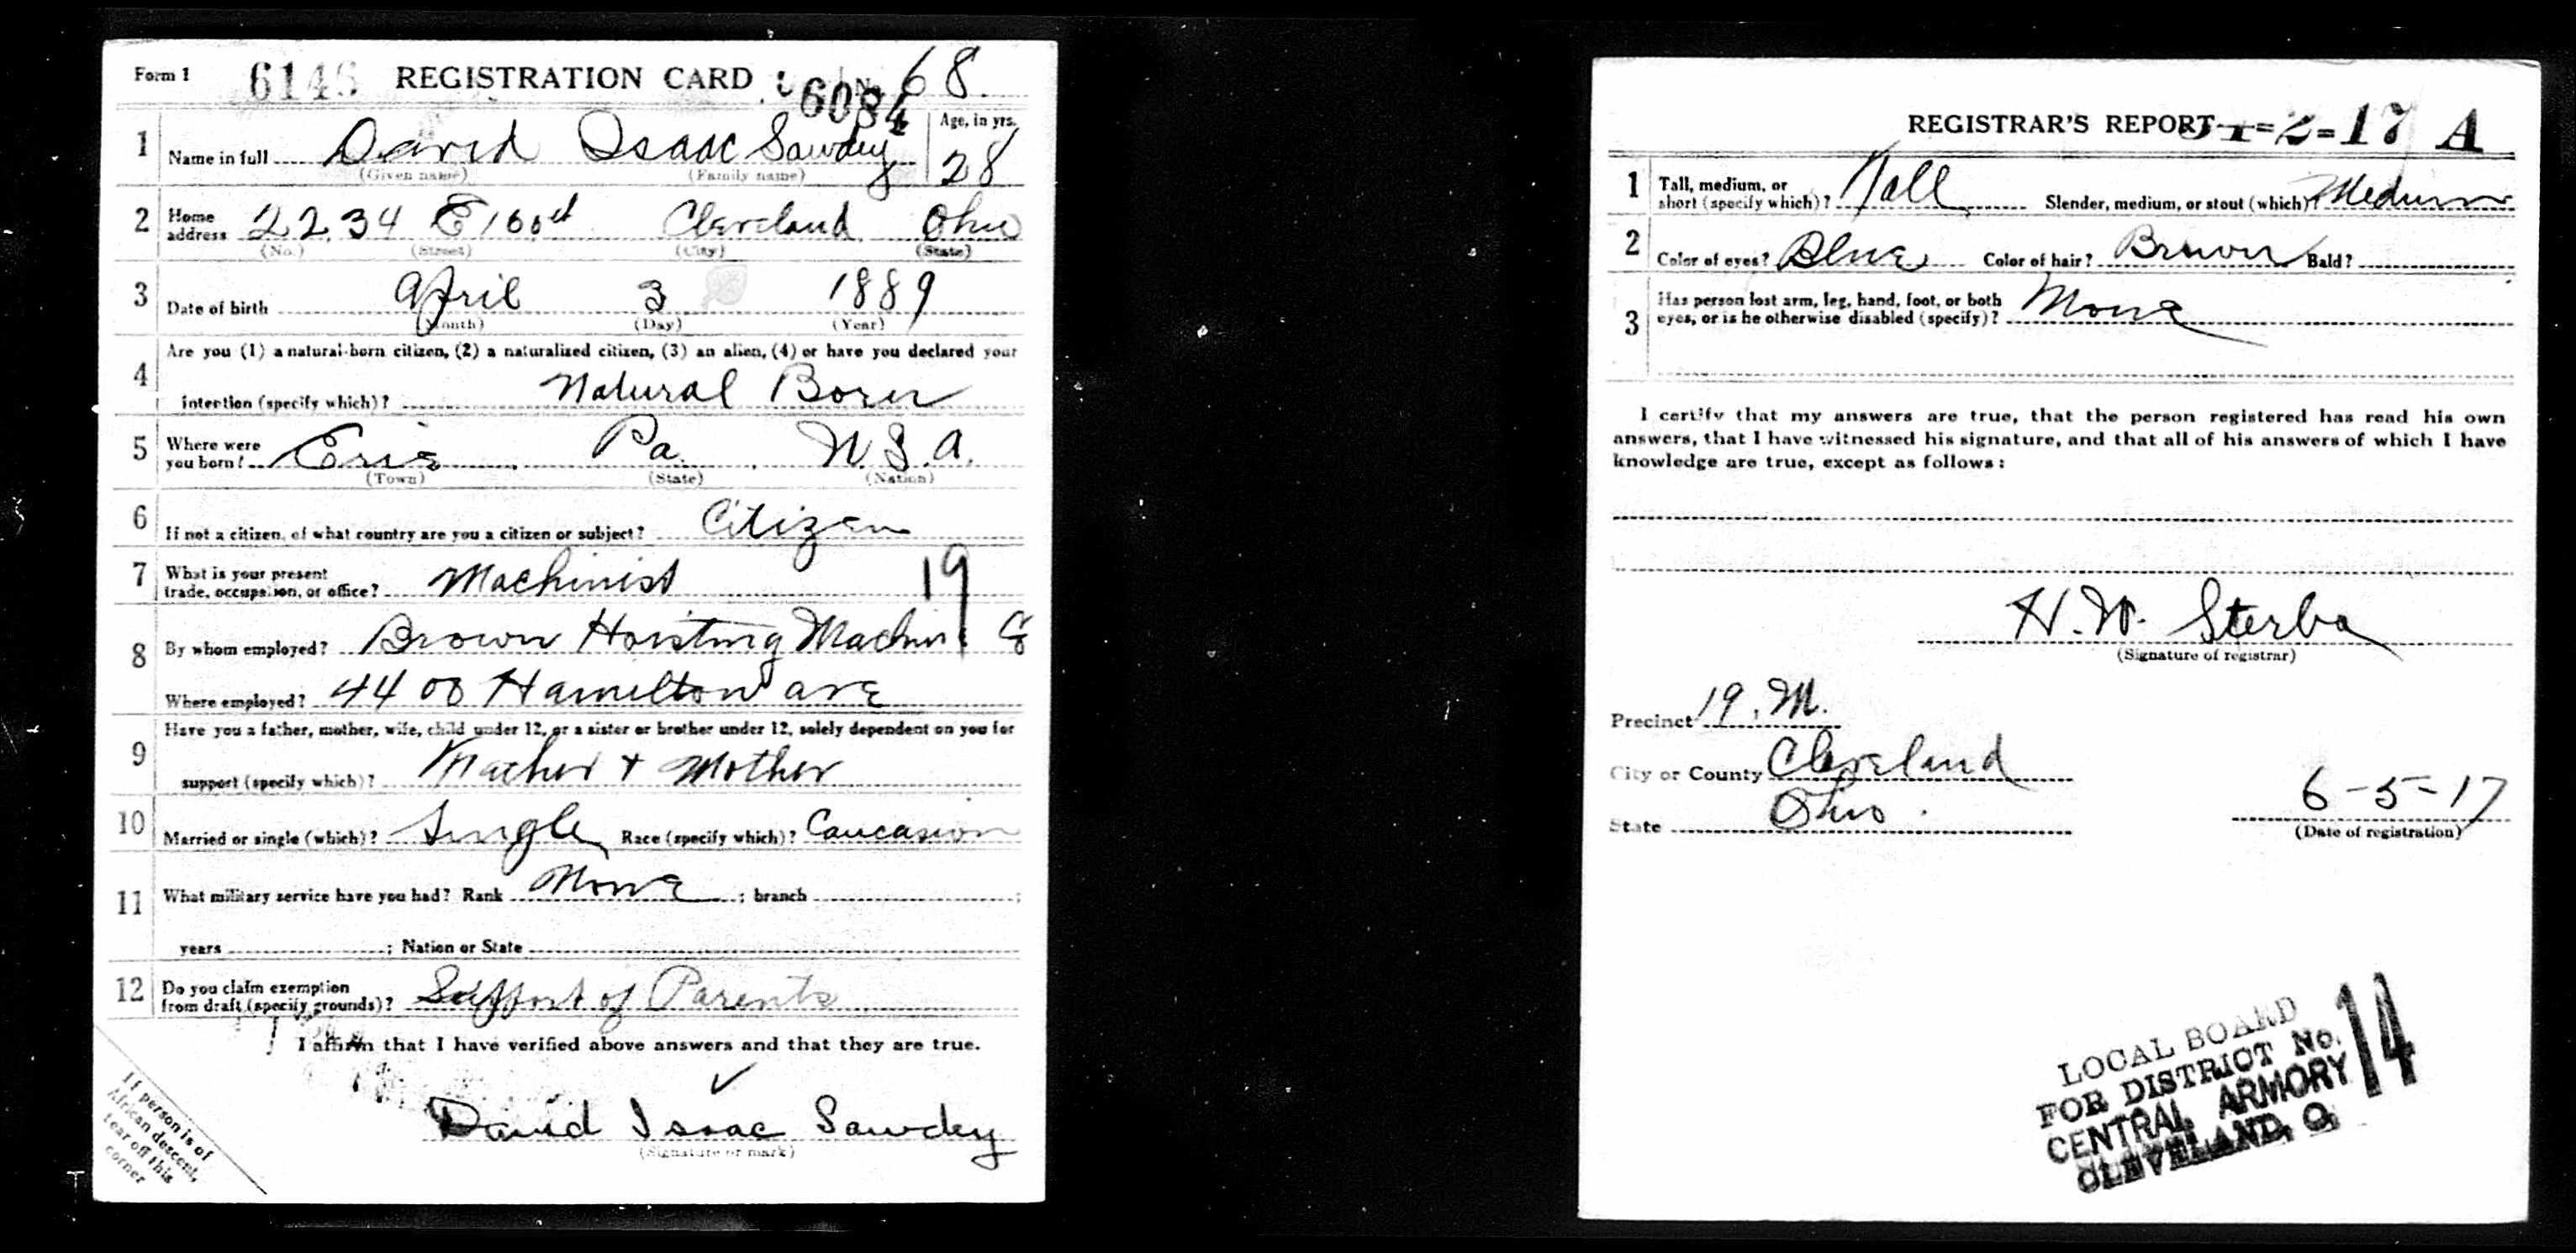 Form 1 6146 REGISTRATION CARD No. 68.
6084
1 Name in full David Isaac Sawdey Age, in yrs. 28
(Given name) (Family name)
2 Home address 2234 E 100th Cleveland Ohio
(No.) (Street) (City) (State)
3 Date of birth April 3 1889
(Month) (Day) (Year)
4 Are you (1) a natural-born citizen, (2) a naturalized citizen, (3) an alien, (4) or have you declared your
intention (specify which)? Natural Born
5 Where were you born? Erie Pa. U.S.A.
(Town) (State) (Nation)
6 If not a citizen, of what country are you a citizen or subject? Citizen
7 What is your present trade, occupation, or office? Machinist 19
8 By whom employed? Brown Hoisting Machine Co
Where employed? 4400 Hamilton ave
9 Have you a father, mother, wife, child under 12, or a sister or brother under 12, solely dependent on you for
support (specify which)? Father + Mother
10 Married or single (which)? Single Race (specify which)? Caucasion
11 What military service have you had? Rank None ; branch ;
years ; Nation or State
12 Do you claim exemption from draft (specify grounds)? Support of Parents
I affirm that I have verified above answers and that they are true.
David Isaac Sawdey
(Signature or mark)
If person is of
African descent,
tear off this
corner
REGISTRAR'S REPORT 2-17 A
1 Tall, medium, or short (specify which)? Tall Slender, medium, or stout (which)? Medium
2 Color of eyes? Blue Color of hair? Brown Bald?
3 Has person lost arm, leg, hand, foot, or both
eyes, or is he otherwise disabled (specify)? None
I certify that my answers are true, that the person registered has read his own
answers, that I have witnessed his signature, and that all of his answers of which I have
knowledge are true, except as follows:
H. W. Sterba
(Signature of registrar)
Precinct 19. M.
City or County Cleveland
State Ohio.
6-5-17
(Date of registration)
LOCAL BOARD
FOR DISTRICT No. 14
CENTRAL ARMORY
CLEVELAND, O.